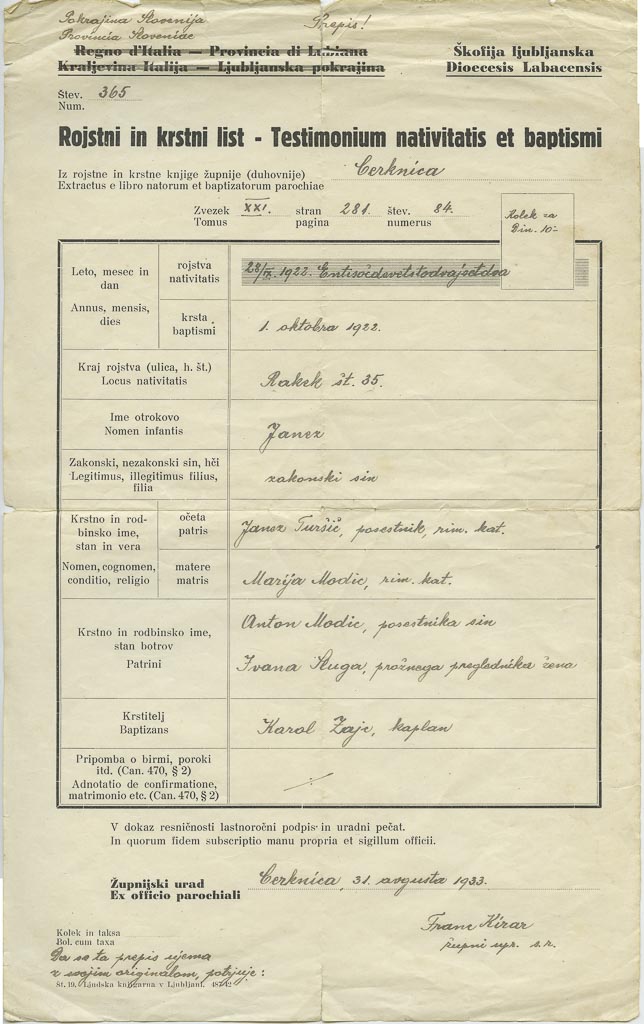 Pokrajina Slovenija
Provincia Sloveniae
Prepis!
Regno d'Italia — Provincia di Lubiana
Kraljevina Italija — Ljubljanska pokrajina
Škofija ljubljanska
Dioecesis Labacensis
Štev. 365
Num.
Rojstni in krstni list - Testimonium nativitatis et baptismi
Iz rojstne in krstne knjige župnije (duhovnije) Cerknica
Extractus e libro natorum et baptizatorum parochiae
Zvezek XXI. stran 281. štev. 84.
Tomus pagina numerus
Kolek za
Din. 10-
Leto, mesec in
dan
Annus, mensis,
dies
rojstva
nativitatis
28/IX. 1922. Entisočdevetstodvajsetdva
krsta
baptismi
1. oktobra 1922.
Kraj rojstva (ulica, h. št.)
Locus nativitatis
Rakek št. 35.
Ime otrokovo
Nomen infantis
Janez
Zakonski, nezakonski sin, hči
Legitimus, illegitimus filius,
filia
zakonski sin
Krstno in rod-
binsko ime,
stan in vera
Nomen, cognomen,
conditio, religio
očeta
patris
Janez Turšič, posestnik, rim. kat.
matere
matris
Marija Modic, rim. kat.
Krstno in rodbinsko ime,
stan botrov
Patrini
Anton Modic, posestnika sin
Ivana Sluga, prožnega preglednika žena
Krstitelj
Baptizans
Karol Zajc, kaplan
Pripomba o birmi, poroki
itd. (Can. 470, § 2)
Adnotatio de confirmatione,
matrimonio etc. (Can. 470, § 2)
V dokaz resničnosti lastnoročni podpis in uradni pečat.
In quorum fidem subscriptio manu propria et sigillum officii.
Župnijski urad
Ex officio parochiali
Cerknica, 31. avgusta 1933.
Kolek in taksa
Bol. cum taxa
Franc Kirar
župni upr. s.r.
Da se ta prepis ujema
z svojim originalom, potrjuje:
Št. 19. Ljudska knjigarna v Ljubljani. 487/42